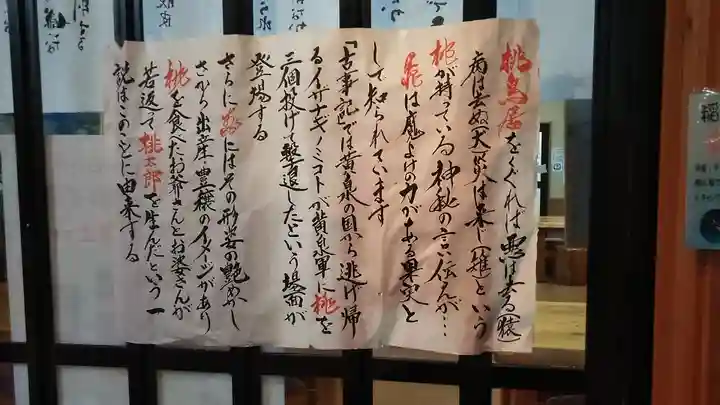 桃鳥居をくぐれば悪は去る(猿)
病は去ぬ(犬)災は来じ(雉)という
桃が持っている神秘の言い伝えが…
桃は魔よけの力がある果実と
して知られています
「古事記では黄泉の国から逃げ帰
るイザナギノミコトが黄泉軍に桃を
三個投げて撃退したという場面が
登場する
さらに桃にはその形姿の艶かし
さから出産・豊穣のイメージがあり
桃を食べたお爺さんとお婆さんが
若返って桃太郎を生んだという一
説はこのことに由来する
稲